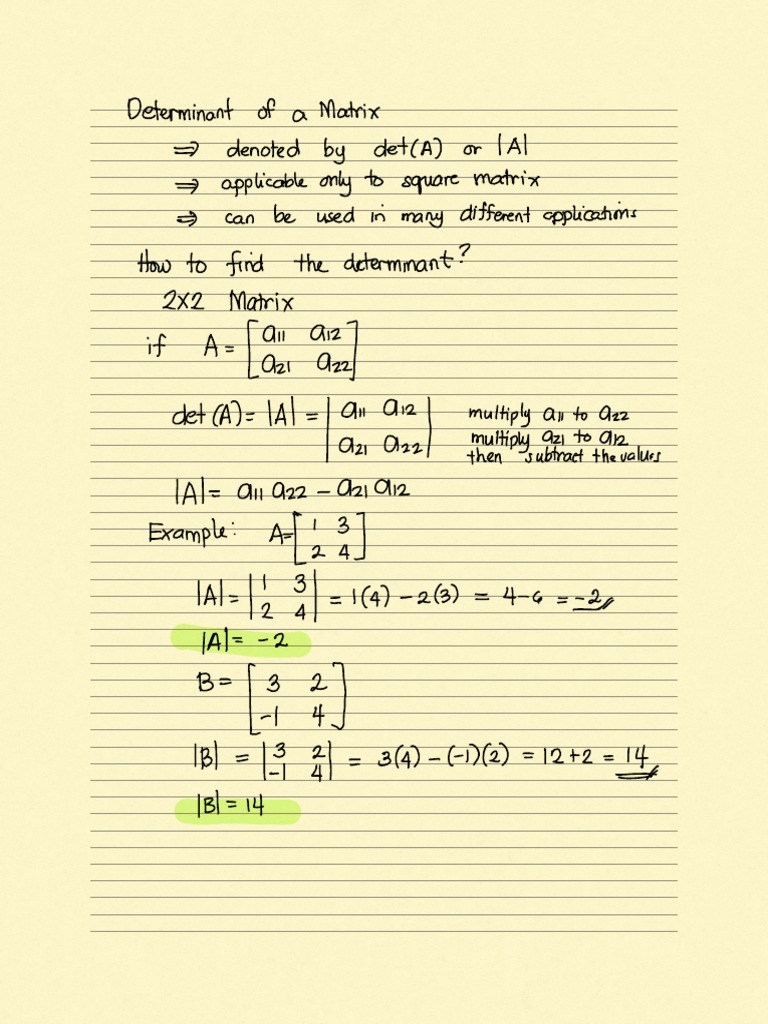 Determinant of a Matrix
⇒ denoted by det(A) or |A|
⇒ applicable only to square matrix
⇒ can be used in many different applications
How to find the determinant?
2x2 Matrix
if A = [a11 a12
a21 a22]
det(A) = |A| = |a11 a12
a21 a22|
multiply a11 to a22
multiply a21 to a12
then subtract the values
|A| = a11 a22 - a21 a12
Example: A= [1 3
2 4]
|A| = |1 3
2 4| = 1(4) - 2(3) = 4-6 = -2
|A| = -2
B = [3 2
-1 4]
|B| = |3 2
-1 4| = 3(4) - (-1)(2) = 12+2 = 14
|B| = 14